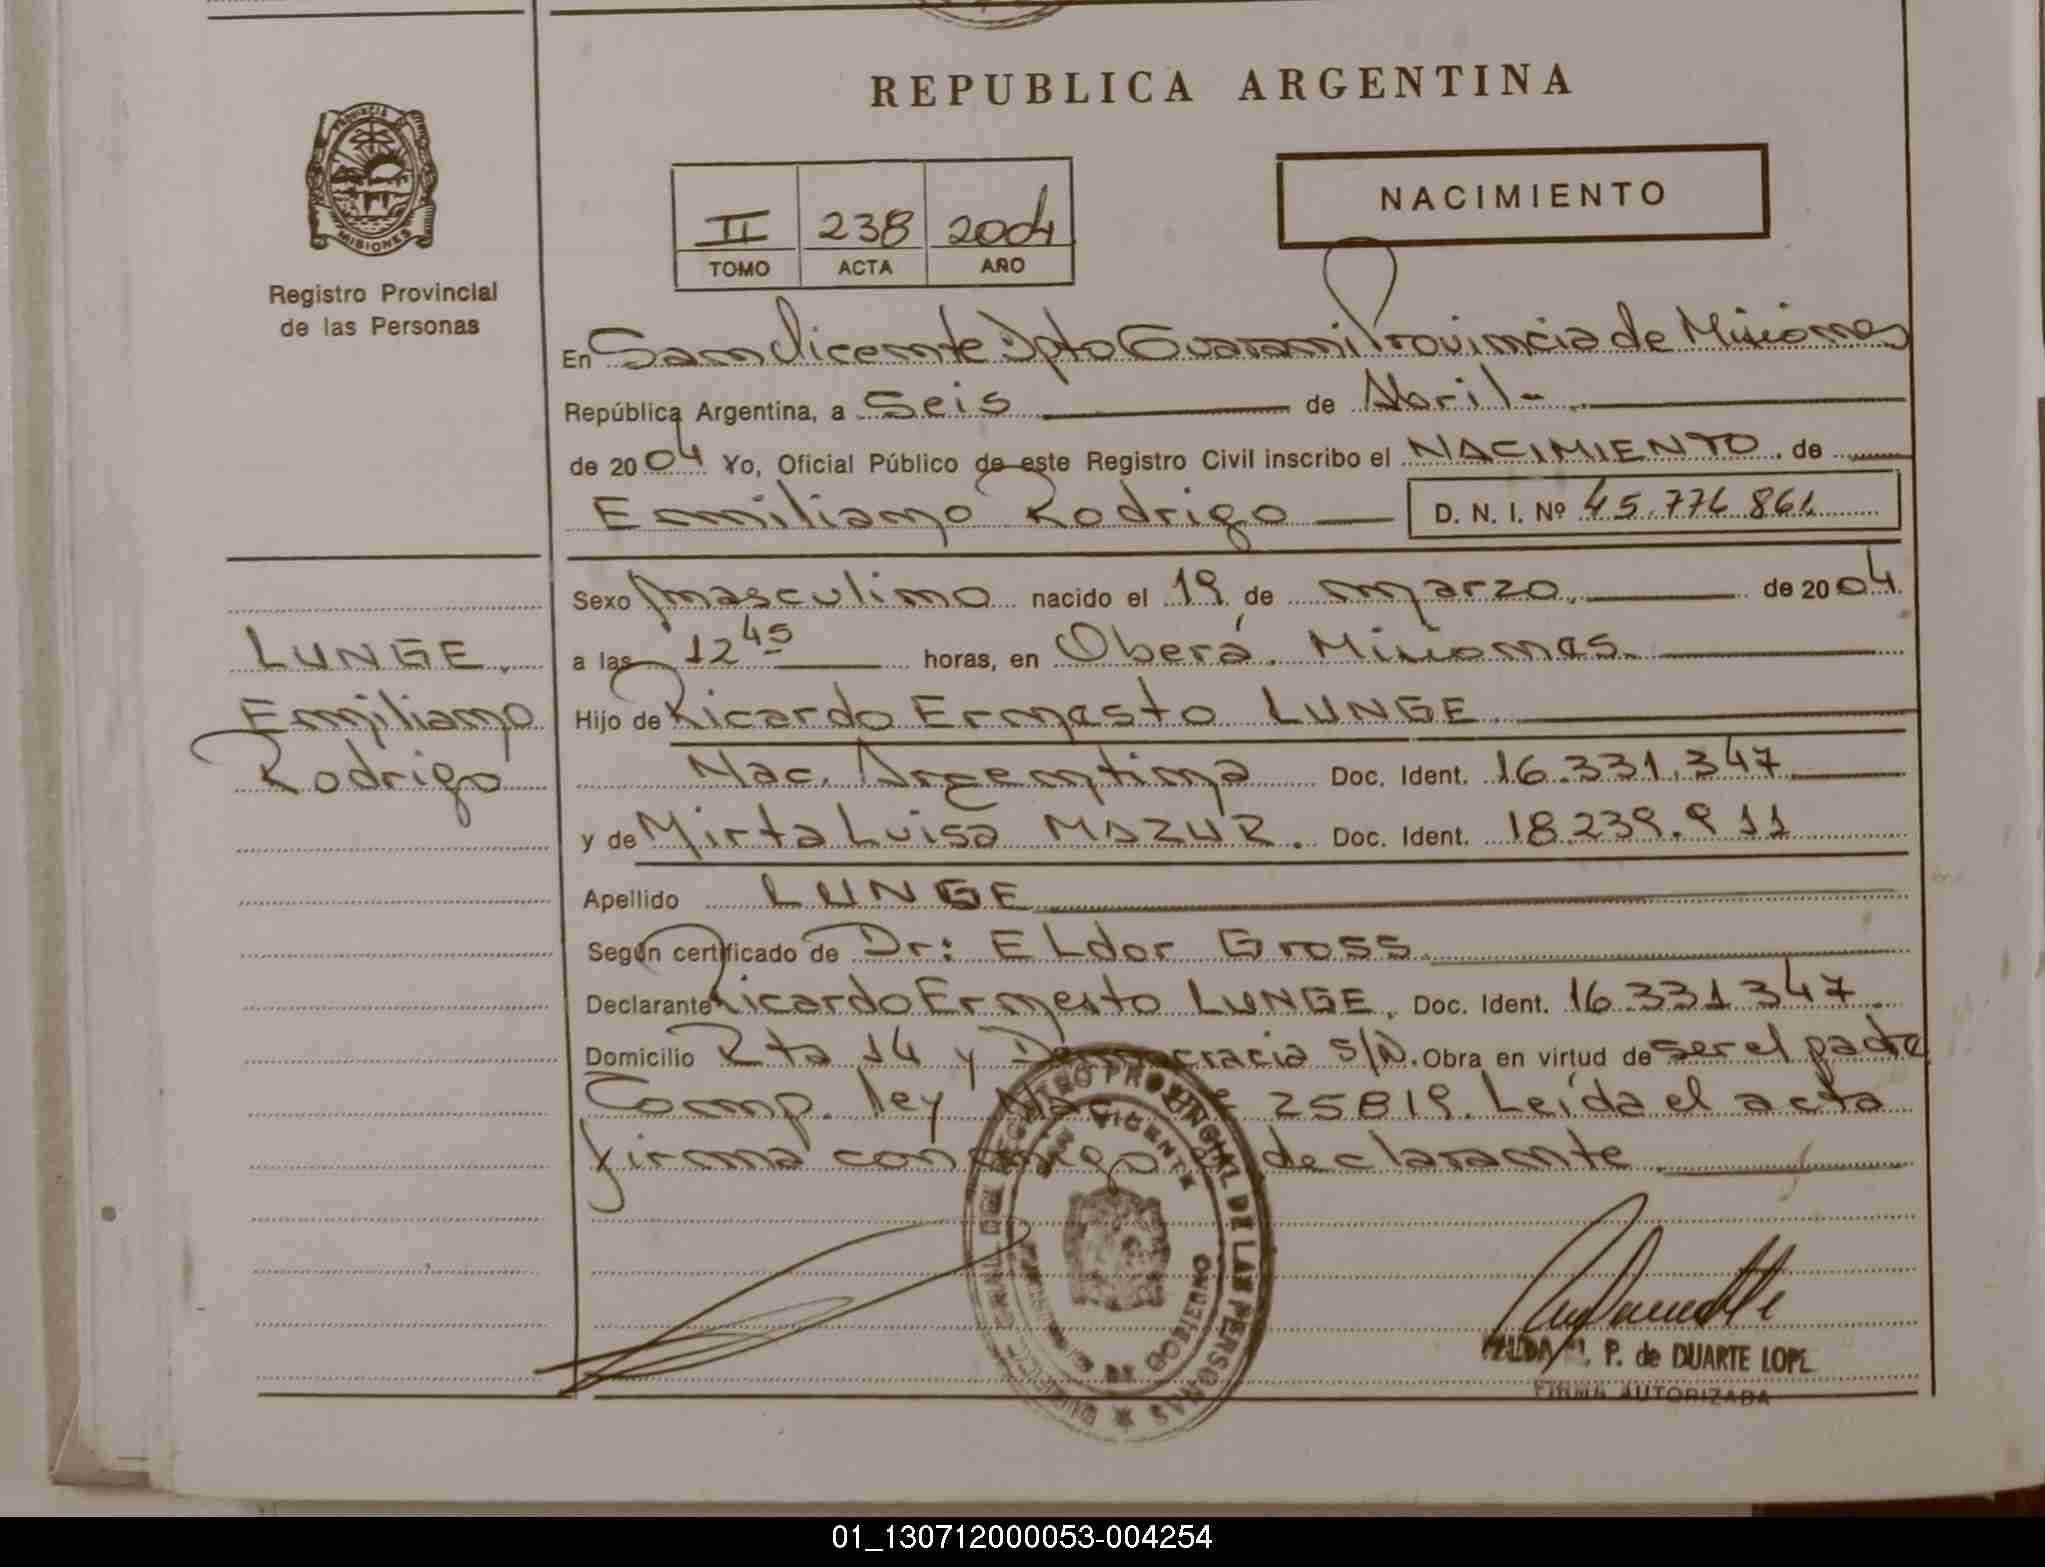 REPUBLICA ARGENTINA
PROVINCIA
MISIONES
Registro Provincial
de las Personas
NACIMIENTO
II 238 2004
TOMO ACTA AÑO
En San Vicente Dpto Guarani Provincia de Misiones
República Argentina, a Seis de Abril-
de 2004 Yo, Oficial Público de este Registro Civil inscribo el NACIMIENTO. de
Emiliano Rodrigo D. N. I. Nº 45.776 861
Sexo masculino nacido el 19 de marzo. de 2004
LUNGE.
a las 12 45 horas, en Oberá. Misiones.
Emiliano
Hijo de Ricardo Ernesto LUNGE
Rodrigo
Nac. Argentina Doc. Ident. 16.331.347
y de Mirta Luisa MAZUR. Doc. Ident. 18.239.911
Apellido LUNGE
Según certificado de Dr: ELdor Gross.
Declarante Ricardo Ernesto LUNGE. Doc. Ident. 16.331347.
Domicilio Rta 14 y Democracia S/N. Obra en virtud de ser el padre
Comp. ley Nac 25819. Leída el acta
firma conmigo el declarante.
REGISTRO PROVINCIAL DE LAS PERSONAS
SAN VICENTE
GOBIERNO
P. de DUARTE LOPE
FIRMA AUTORIZADA
01_130712000053-004254